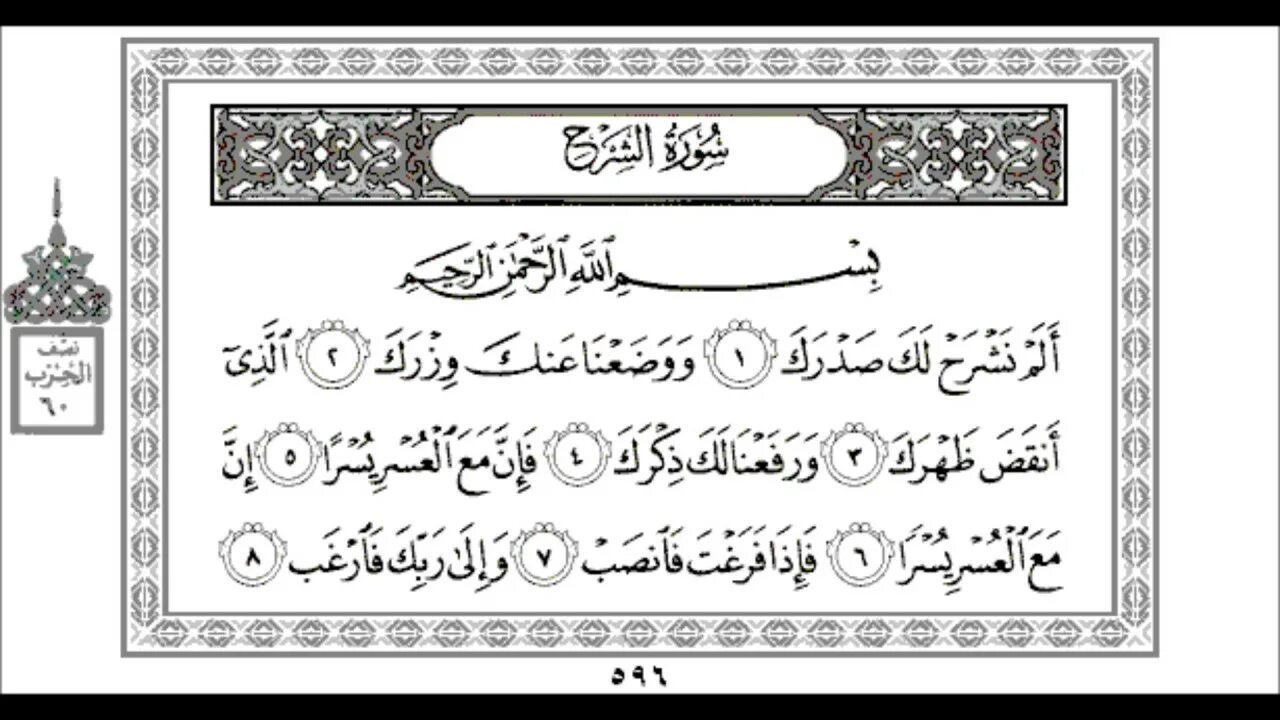 سُورَةُ الشَّرْحِ
بِسْمِ ٱللَّهِ ٱلرَّحْمَٰنِ ٱلرَّحِيمِ
أَلَمْ نَشْرَحْ لَكَ صَدْرَكَ ١ وَوَضَعْنَا عَنكَ وِزْرَكَ ٢ ٱلَّذِىٓ
أَنقَضَ ظَهْرَكَ ٣ وَرَفَعْنَا لَكَ ذِكْرَكَ ٤ فَإِنَّ مَعَ ٱلْعُسْرِ يُسْرًا ٥ إِنَّ
مَعَ ٱلْعُسْرِ يُسْرًا ٦ فَإِذَا فَرَغْتَ فَٱنصَبْ ٧ وَإِلَىٰ رَبِّكَ فَٱرْغَب ٨
نصف
الحزب
٦٠
٥٩٦